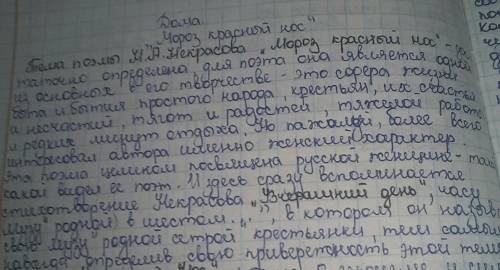 Дома
"Мороз красный нос"
Тема поэмы Н.А. Некрасова "Мороз красный нос" - дос
таточно определена, для поэта она является одной
из основных в его творчестве - это сфера жизни
быта и бытия простого народа, крестьян, их счастья
и несчастий, тягот и радостей, тяжелой работы
и редких минут отдыха. Но пажалуй, более всего
интересовал автора именно женский характер.
Эта поэма целиком посвящена русской женщине - так
какой видел её поэт. И здесь сразу вспоминается
стихотворение Некрасова "Вчерашний день", часу
в шестом...", в котором он назыв
свою музу родной сестрой крестьянки тем самым
определив свою приверженность этой теме